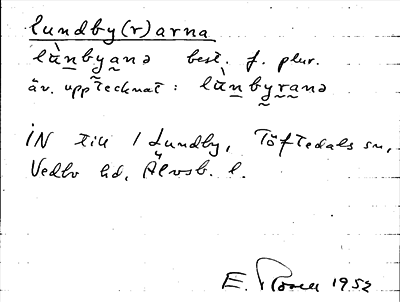 lundby(r)arna
lùnbyanə best. f. plur.
äv. upptecknat: lùnbyranə
IN till 1 Lundby, Töftedals sn,
Vedbo hd, Älvsb. l.
E. 1952